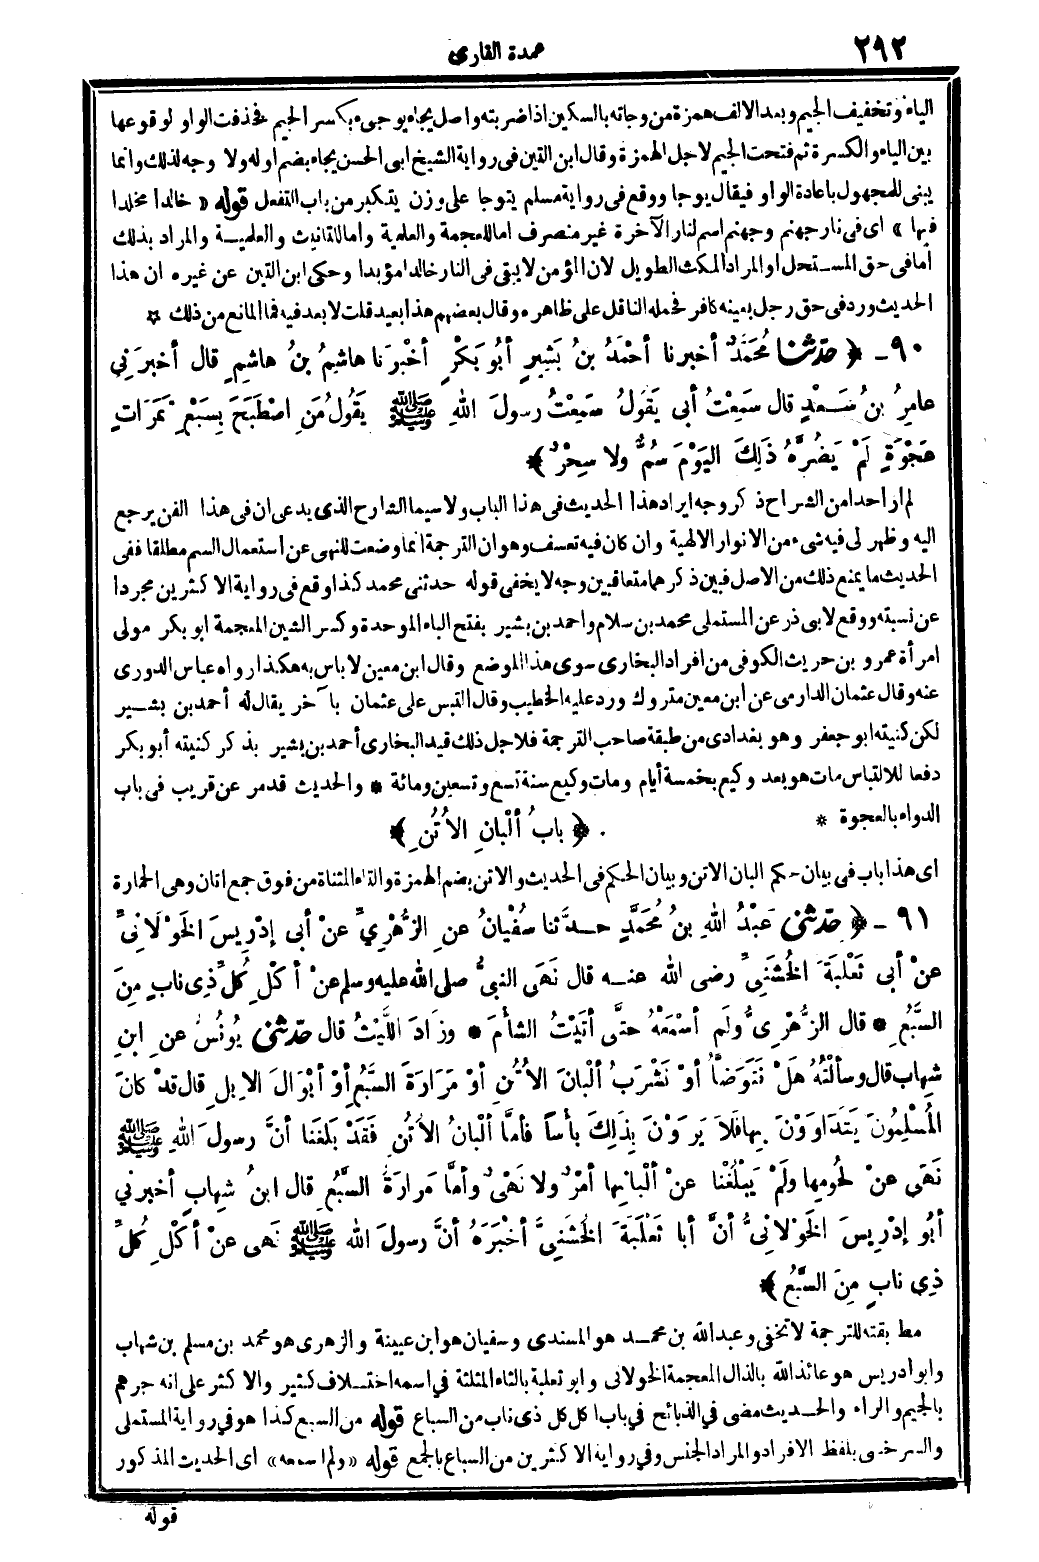 ٢٩٢
عمدة القارى
الياء وتخفيف الجيم وبعد الالف همزة من وجاته بالسكين اذا ضربته واصل يجاء يوجىء بكسر الجيم فحذفت الواو لوقوعها
بين الياء والكسرة ثم فتحت الجيم لاجل الهمزة وقال ابن التين فى رواية الشيخ ابى الحسن يجاء بضم اوله ولا وجه لذلك وانما
يبنى للمجهول باعادة الواو فيقال يوجا ووقع فى رواية مسلم يتوجا على وزن يتكبر من باب التفعل قوله «خالدا مخلدا
فيها» اى فى نار جهنم وجهنم اسم لنار الآخرة غير منصرف اما للعجمة والعلمية واما للتانيث والعلمية والمراد بذلك
اما فى حق المستحل او المراد المكث الطويل لان المؤمن لا يبقى فى النار خالدا مؤبدا وحكى ابن التين عن غيره ان هذا
الحديث ورد فى حق رجل بعينه كافر فحمله الناقل على ظاهره وقال بعضهم هذا بعيد قلت لا بعد فيه فما المانع من ذلك *
٩٠ - ﴿ حدّثنا مُحَمَّدٌ أخبرنا أحْمَدُ بنُ بَشِيرٍ أبُو بَكْرٍ أخْبَرَنا هاشِمُ بنُ هاشِمٍ قال أخبرَنِي
عامِرُ بنُ سَعْدٍ قال سَمِعْتُ أبى يَقُولُ سَمِعْتُ رسولَ اللهِ ﷺ يَقُولُ مَنِ اصْطَبَحَ بِسَبْعِ تَمَرَاتٍ
عَجْوَةٍ لَمْ يَضُرَّهُ ذَلِكَ اليَوْمَ سُمٌّ ولا سِحْرٌ ﴾
لم ار احدا من الشراح ذكر وجه ايراد هذا الحديث فى هذا الباب ولا سيما الشارح الذى يدعى ان فى هذا الفن يرجع
اليه وظهر لى فيه شىء من الانوار الالهية وان كان فيه تعسف وهو ان الترجمة انما وضعت للنهى عن استعمال السم مطلقا ففى
الحديث ما يمنع ذلك من الاصل فبين ذكرهما متعاقبين وجه لا يخفى قوله حدثنى محمد كذا وقع فى رواية الاكثرين مجردا
عن نسبته ووقع لابى ذر عن المستملى محمد بن سلام واحمد بن بشير بفتح الباء الموحدة وكسر الشين المعجمة ابو بكر مولى
امرأة عمرو بن حريث الكوفى من افراد البخارى سوى هذا الموضع وقال ابن معين لا باس به هكذا رواه عباس الدورى
عنه وقال عثمان الدارمى عن ابن معين متروك ورد عليه الخطيب وقال التبس على عثمان بآخر يقال له أحمد بن بشير
لكن كنيته ابو جعفر وهو بغدادى من طبقة صاحب الترجمة فلاجل ذلك قيد البخارى أحمد بن بشير بذكر كنيته أبو بكر
دفعا للالتباس مات هو بعد وكيع بخمسة أيام ومات وكيع سنة تسع وتسعين ومائة * والحديث قد مر عن قريب فى باب
الدواء بالعجوة *
﴿ بابُ ألْبانِ الأُتُنِ ﴾
اى هذا باب فى بيان حكم البان الاتن وبيان الحكم فى الحديث والاتن بضم الهمزة والتاء المثناة من فوق جمع اتان وهى الحمارة
٩١ - ﴿ حدّثنى عَبْدُ اللهِ بنُ مُحَمَّدٍ حدَّثنا سُفْيانُ عنِ الزُّهْرِيِّ عنْ أبى إدْرِيسَ الخَوْلَانِىِّ
عنْ أبى ثَعْلَبَةَ الخُشَنِيِّ رضى الله عنه قال نَهَى النبىُّ صلى الله عليه وسلم عنْ أكْلِ كُلِّ ذِى نابٍ مِنَ
السَّبُعِ * قال الزُّهْرِىُّ ولَم أسْمَعْهُ حتَّى أتَيْتُ الشأْمَ * وزَادَ اللَّيْثُ قال حدّثنى يُونُسُ عنِ ابنِ
شِهابٍ قال وسألْتُهُ هَلْ نَتَوَضَّأُ أوْ نَشْرَبُ ألْبانَ الأُتُنِ أوْ مَرَارَةَ السَّبُعِ أوْ أبْوَالَ الإبِلِ قال قدْ كانَ
المُسْلِمُونَ يَتَدَاوَوْنَ بِها فَلَا يَرَوْنَ بِذَلِكَ بأْساً فأمَّا ألْبانُ الأُتُنِ فَقَدْ بَلَغَنا أنَّ رسولَ اللهِ ﷺ
نَهَى عنْ لُحُومِها ولَمْ يَبْلُغْنا عنْ ألْبانِها أمْرٌ ولا نَهْىٌ وأمَّا مَرارَةُ السَّبُعِ قال ابنُ شِهابٍ أخبرنِي
أبُو إدْرِيسَ الخَوْلانِىُّ أنَّ أبا ثَعْلَبَةَ الخُشَنِىَّ أخْبَرَهُ أنَّ رسولَ الله ﷺ نَهى عنْ أكْلِ كُلِّ
ذِى نابٍ مِنَ السَّبُعِ ﴾
مطابقته للترجمة لا تخفى وعبد الله بن محمد هو المسندى وسفيان هو ابن عيينة والزهرى هو محمد بن مسلم بن شهاب
وابو ادريس هو عائذ الله بالذال المعجمة الخولانى وابو ثعلبة بالثاء المثلثة فى اسمه اختلاف كثير والاكثر على انه جرهم
بالجيم والراء والحديث مضى فى الذبائح فى باب اكل كل ذى ناب من السباع قوله من السبع كذا هو فى رواية المستملى
والسرخسى بلفظ الافراد والمراد الجنس وفى رواية الاكثرين من السباع بالجمع قوله «ولم اسمعه» اى الحديث المذكور
قوله